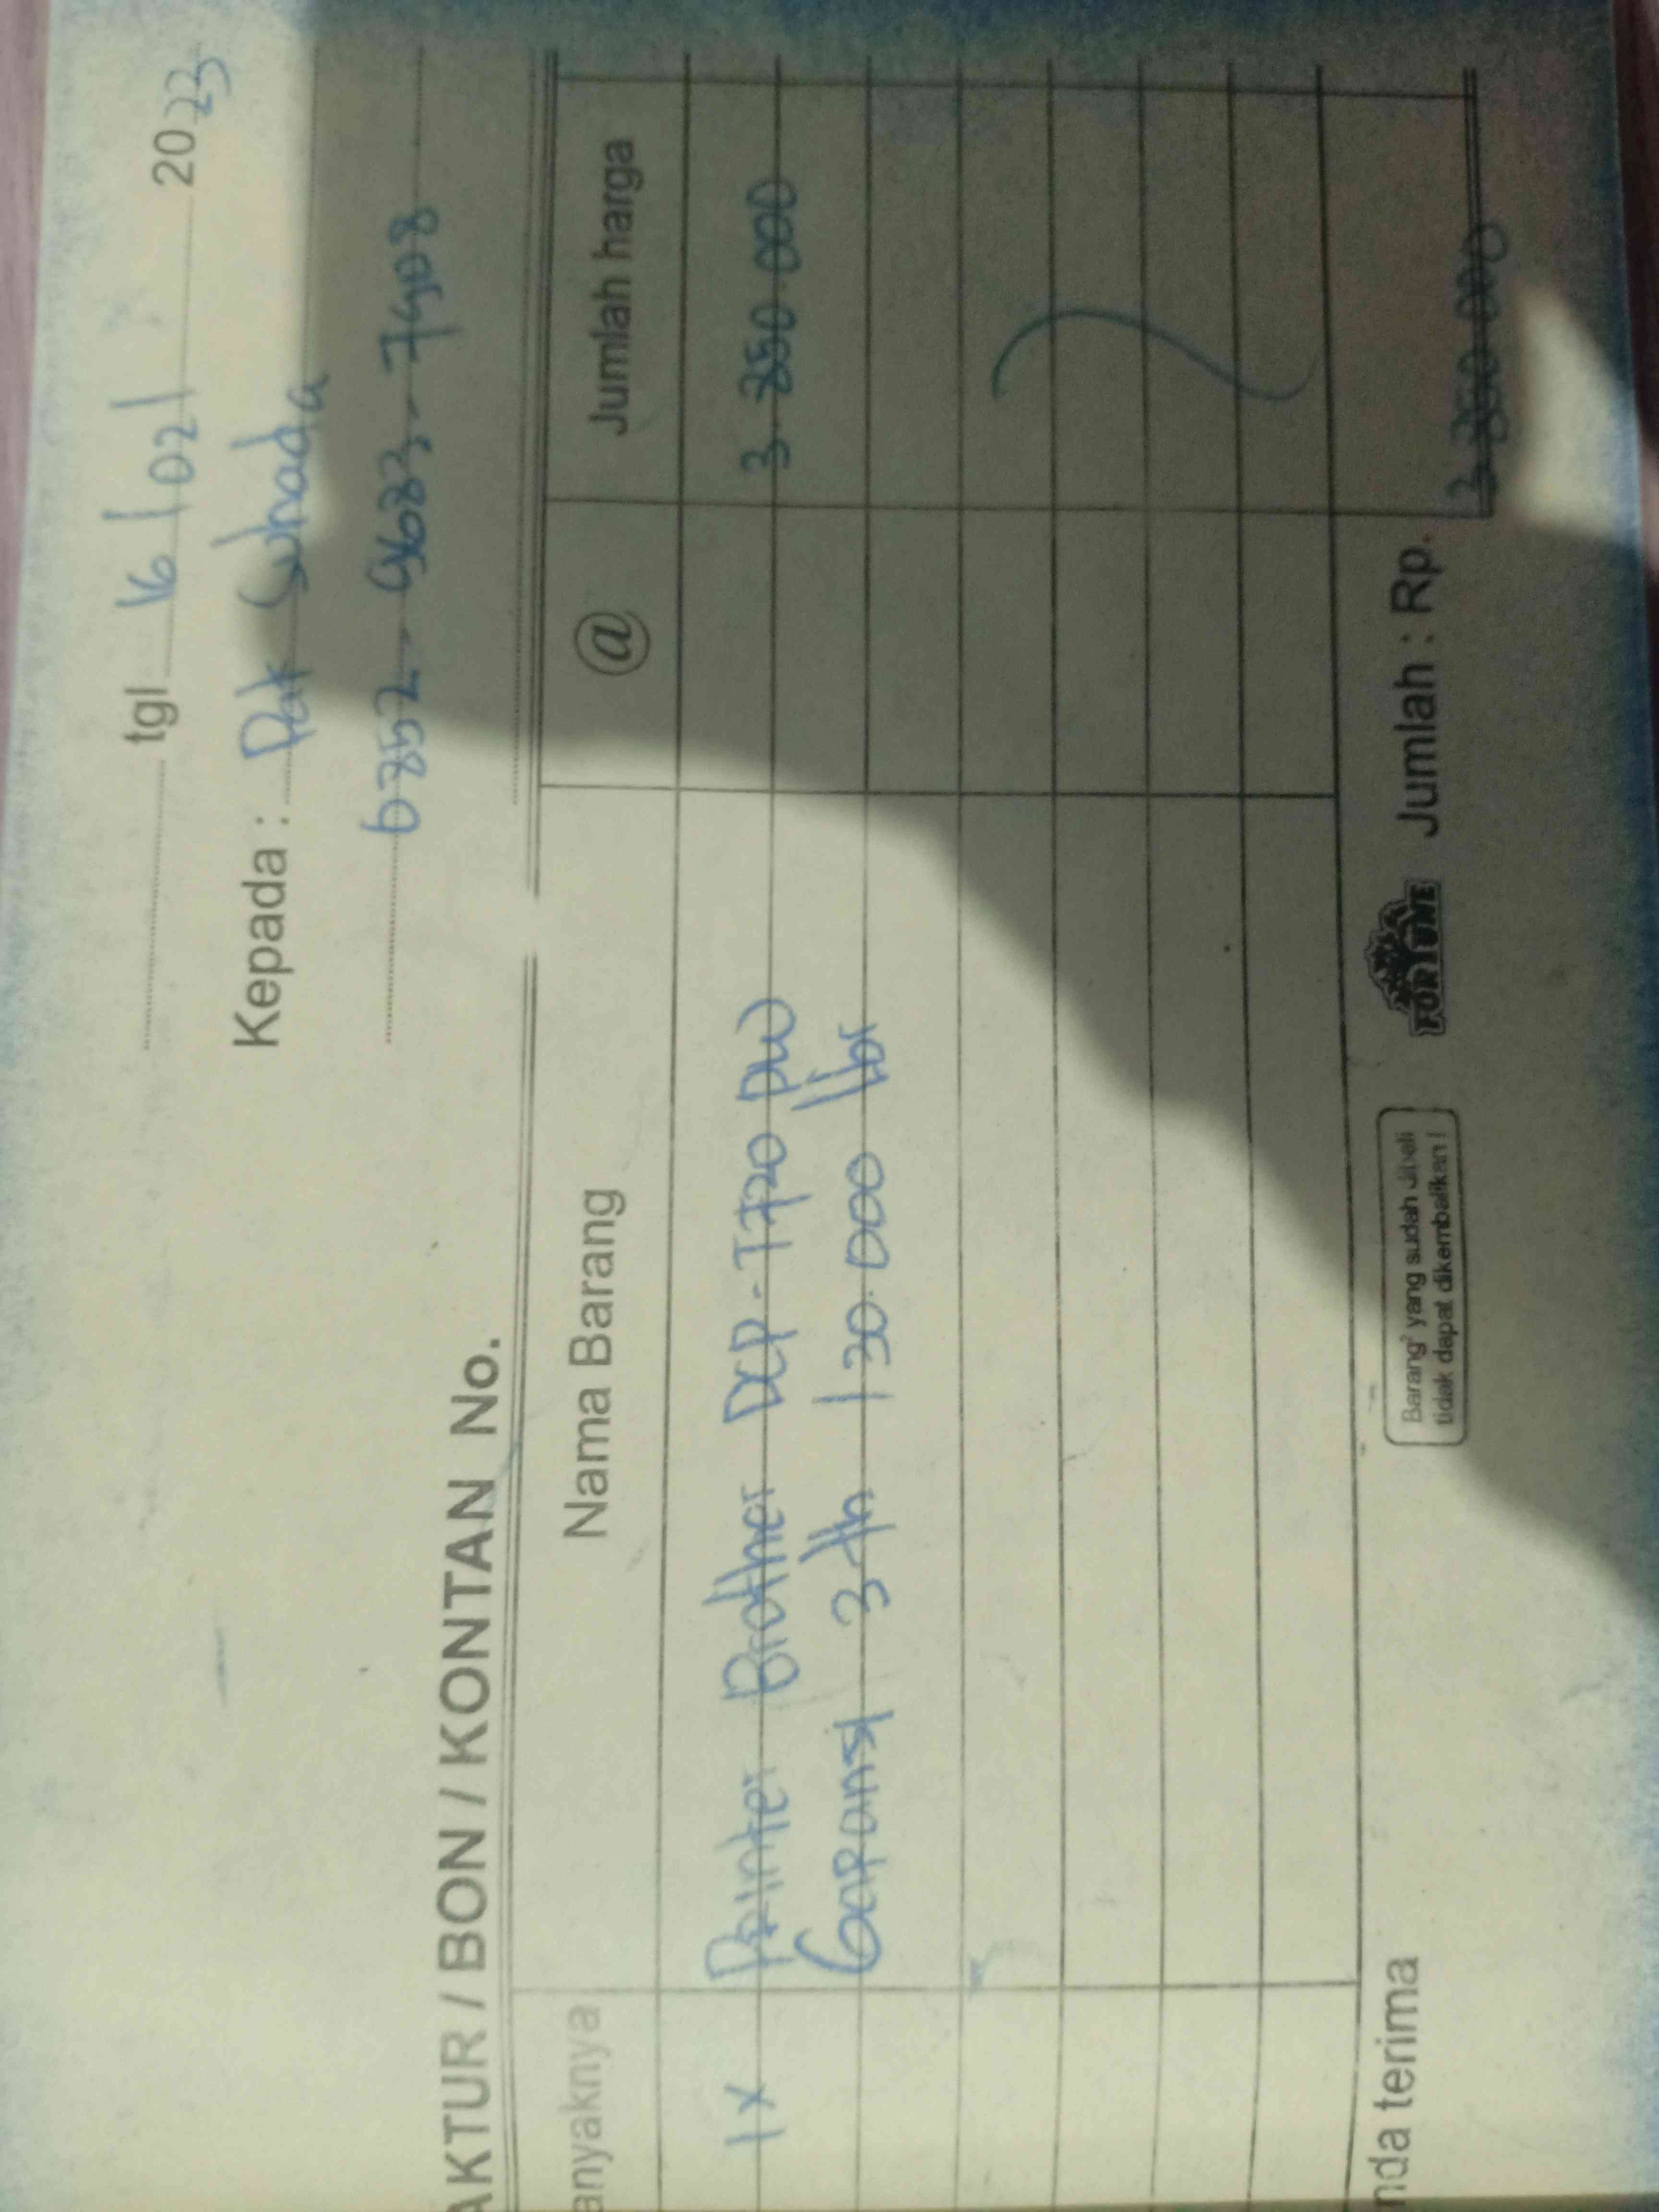 tgl 16/02/ 2023
Kepada : Pak Suhada
0852-9683-7908
AKTUR / BON / KONTAN No.
anyaknya Nama Barang @ Jumlah harga
1x Printer Brother DCP-T720 DW 3.850.000
Garansi 3 th / 30.000 lbr
nda terima
Barang² yang sudah dibeli
tidak dapat dikembalikan!
FORTUNE
Jumlah : Rp. 3.850.000